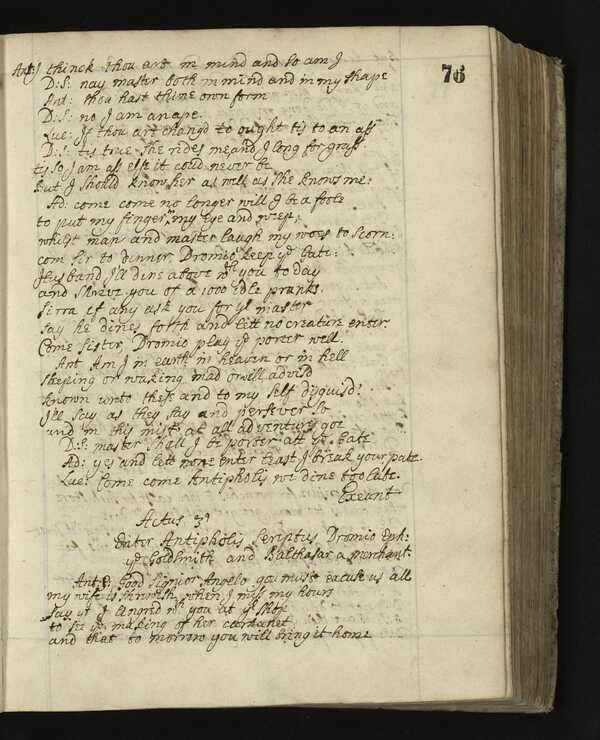 76
Ant: I thinck thou art in mind and so am I
D:S: nay master both in mind and in my shape
Ant: thou hast thine own form
D:S: no I am an ape.
Luc: If thou art changd to ought tis to an ass
D:S: tis true she rides me and I long for grass
tis so I am ass else it could never be
But I should know her as well as she knows me:
Ad: come come no longer will I be a foole
to put my finger in my Eye and weep,
whilst man and master laugh my woes to scorn:
com sir to dinner, Dromio keep ye Gate:
Husband I'll dine above wth you to day
and shrive you of a 1000 idle pranks,
sirra if any ask you for yr master
say he dines forth and lett no creature enter:
Come sister, Dromio play ye porter well.
Ant Am I in earth in heaven or in hell
sleeping or waking mad or well advisd
known unto these and to my self disguisd!
I'll say as they say and persever so
and in this mist at all adventures goe
D:S: master shall I be porter att ye Gate
Ad: yes and lett none enter least I break your pate.
Luc: Come come Antipholis we dine too late.
Exeunt
Actus 3s
Enter Antipholis Dromio Eph:
ye Goldsmith and Balthasar a merchant.
Ant:E: Good signior Angelo you must excuse us all
my wife is shrewish when I miss my hours
say yt I lingred wth you at yr shop
to see ye making of her carcanet
and that to morrow you will bring it home